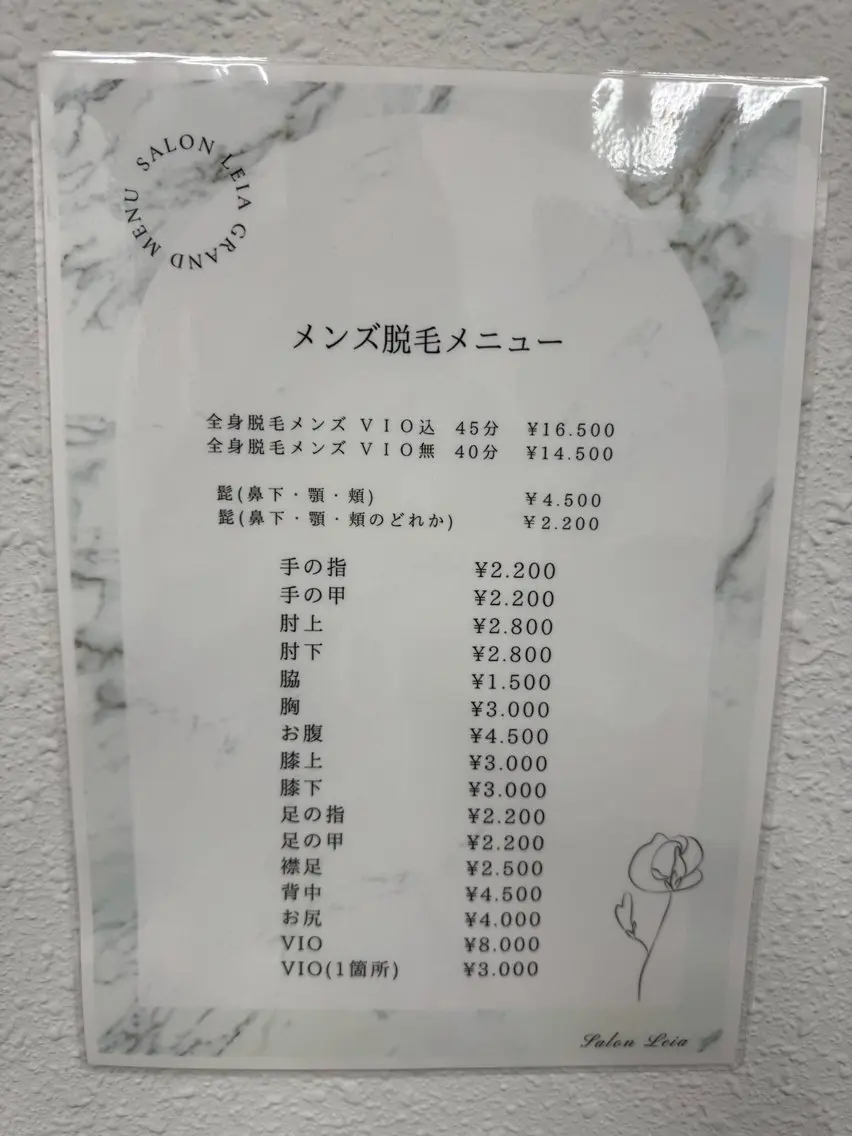 SALON LEIA GRAND MENU
メンズ脱毛メニュー
全身脱毛メンズ ＶＩＯ込 45分 ¥16.500
全身脱毛メンズ ＶＩＯ無 40分 ¥14.500
髭(鼻下・顎・頬) ¥4.500
髭(鼻下・顎・頬のどれか) ¥2.200
手の指 ¥2.200
手の甲 ¥2.200
肘上 ¥2.800
肘下 ¥2.800
脇 ¥1.500
胸 ¥3.000
お腹 ¥4.500
膝上 ¥3.000
膝下 ¥3.000
足の指 ¥2.200
足の甲 ¥2.200
襟足 ¥2.500
背中 ¥4.500
お尻 ¥4.000
VIO ¥8.000
VIO(1箇所) ¥3.000
Salon Leia